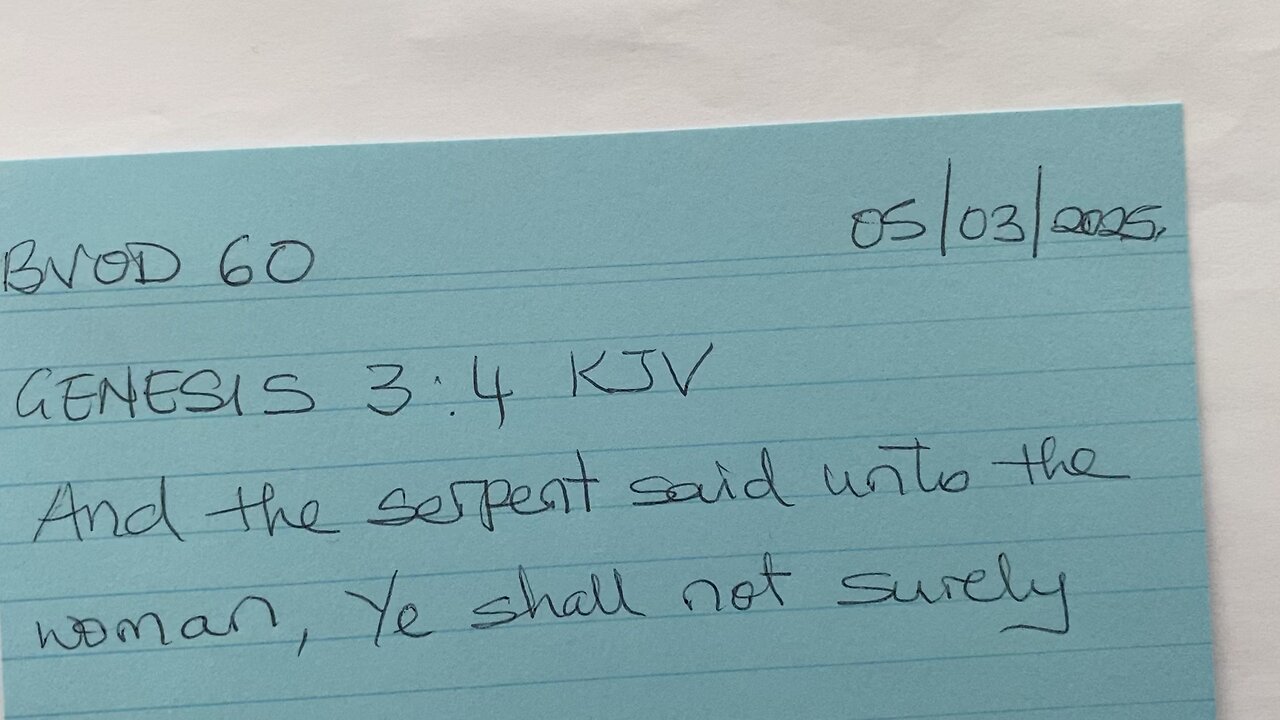 BVOD 60 05/03/2025.
GENESIS 3:4 KJV
And the serpent said unto the
woman, Ye shall not surely